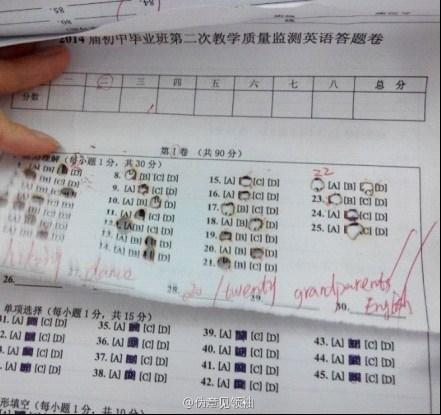 2014届初中毕业班第二次教学质量监测英语答题卷
一 二 三 四 五 六 七 八 总 分
分数
第Ⅰ卷 (共 90 分)
(每小题 1 分，共 30 分)
8. [B] [C] [D] 15. [A] [C] [D] 22 [A] [B] [D]
9. [A] [C] [D] 16. [A] [C] [D] 23. [B] [C] [D]
10. [A] [B] [D] 17. [B] [C] [D] 24. [A] [C] [D]
11. [C] [D] 18. [A] [C] [D] 25. [A] [C] [D]
12. [A] [D] 19. [B] [C] [D]
13. [A] [B] [D] 20. [A] [C] [D]
14. [A] [B] [D] 21. [B] [C] [D]
26. 27. dance 28. 20 / twenty 29. grandparents 30. English
单项选择 (每小题 1 分，共 15 分)
31. [A] [C] [D] 35. [A] [C] [D] 39. [A] [C] [D] 43. [A] [C] [D]
32. [A] [C] [D] 36. [A] [C] [D] 40. [A] [C] [D] 44. [A] [C] [D]
33. [A] [C] [D] 37. [A] [C] [D] 41. [A] [C] [D] 45. [A] [C] [D]
34. [A] [C] [D] 38. [A] [C] [D] 42. [A] [C] [D]
形填空 (每小题 1 分，共 10 分)
@伪意见领袖